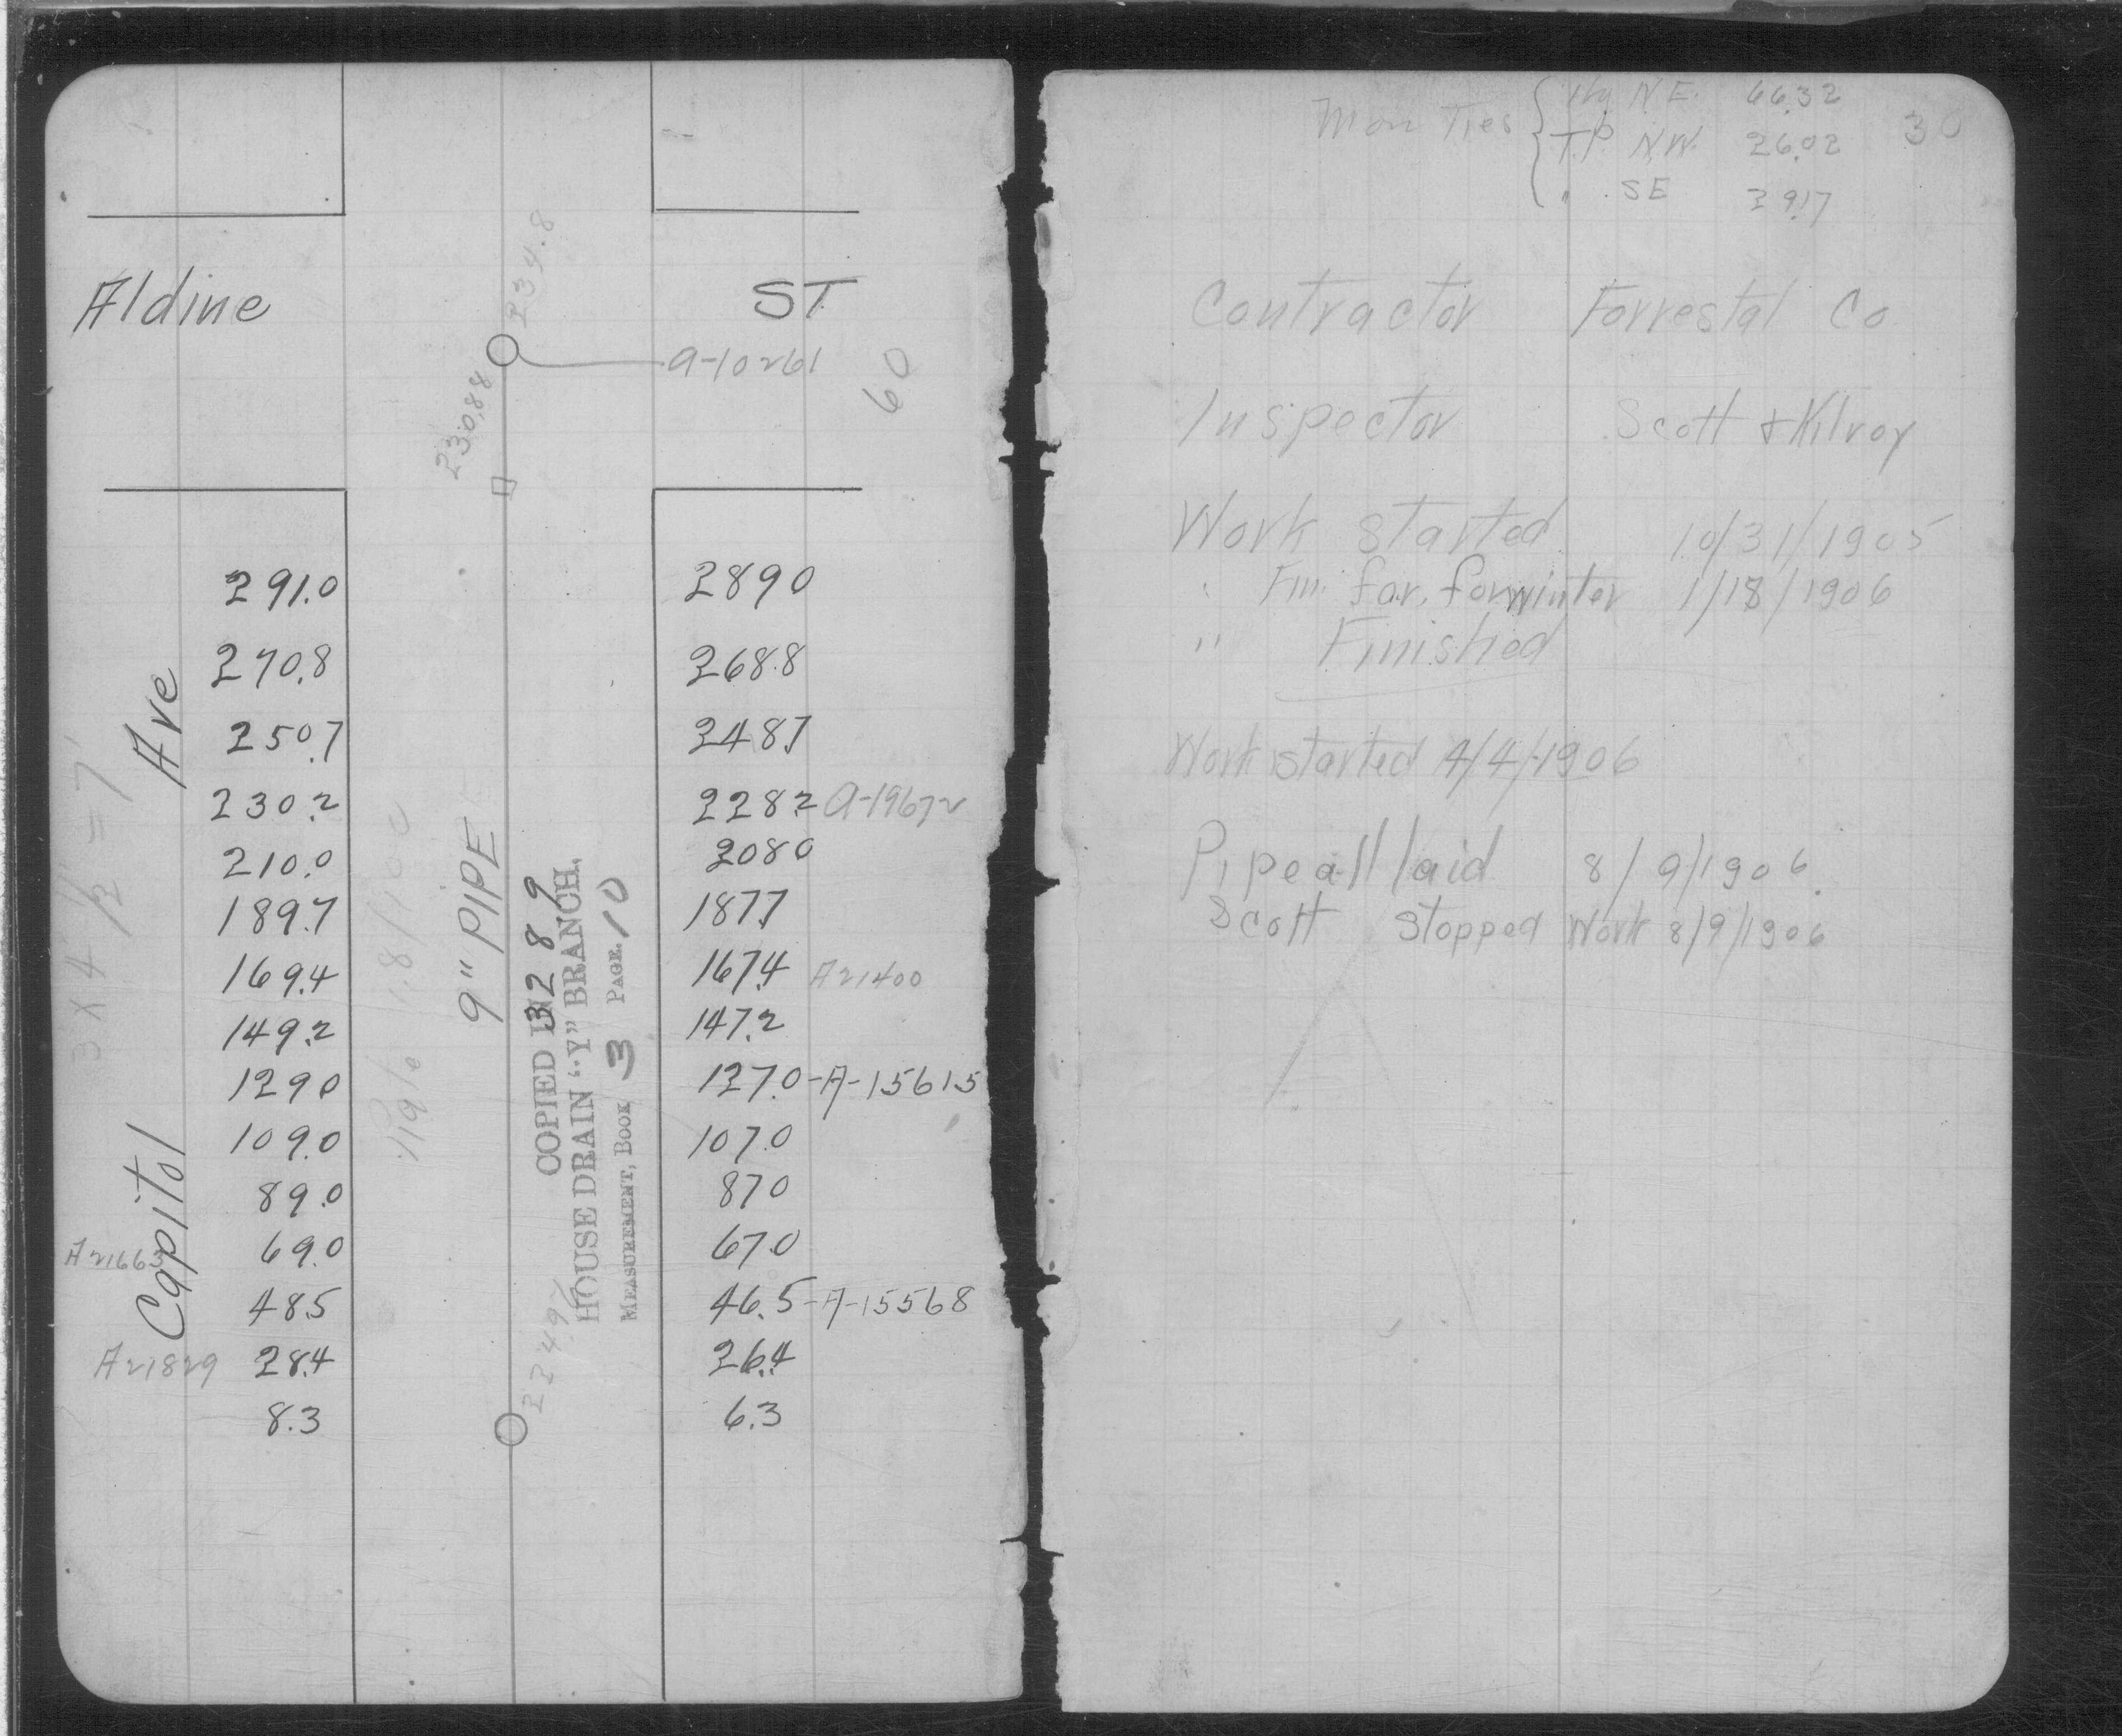 Aldine ST
234.8
a-10261
230.88
60
291.0 289.0
270.8 268.8
250.7 248.7
230.2 228.2 a-19672
210.0 208.0
189.7 187.7
169.4 167.4 A21400
149.2 147.2
129.0 127.0-A-15615
109.0 107.0
89.0 87.0
A21663 69.0 67.0
48.5 46.5-A-15568
A21829 28.4 26.4
8.3 6.3
Capitol Ave
3 x 4 1/2 = 7'
9" PIPE
3289
COPIED IN
HOUSE DRAIN "Y" BRANCH.
MEASUREMENT, BOOK 3 PAGE 10
Mon Ties { Hy N.E. 66.32
T.P. N.W. 26.02
" . SE 39.17
30
Contractor Forrestal Co
Inspector Scott & Kilroy
Work started 10/31/1905
" Fin. for winter 1/18/1906
" Finished
Work started 4/4/1906
Pipe all laid 8/9/1906.
Scott Stopped Work 8/9/1906